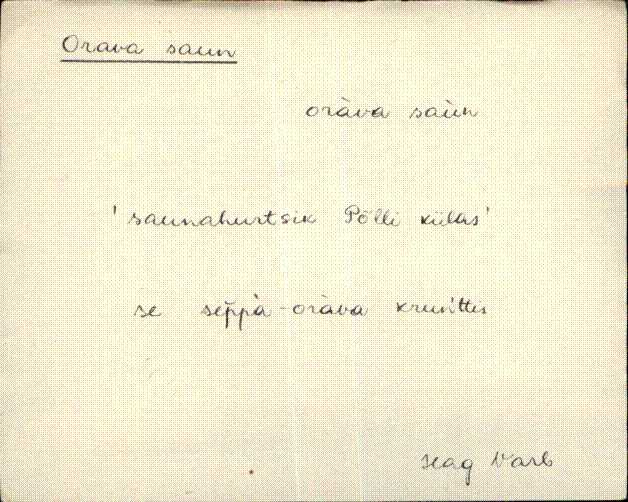 Orava saun
oràva saùn
'saunahurtsik Põlli külas'
se sep̆pà-oràva krun'ttis
Hag Varb